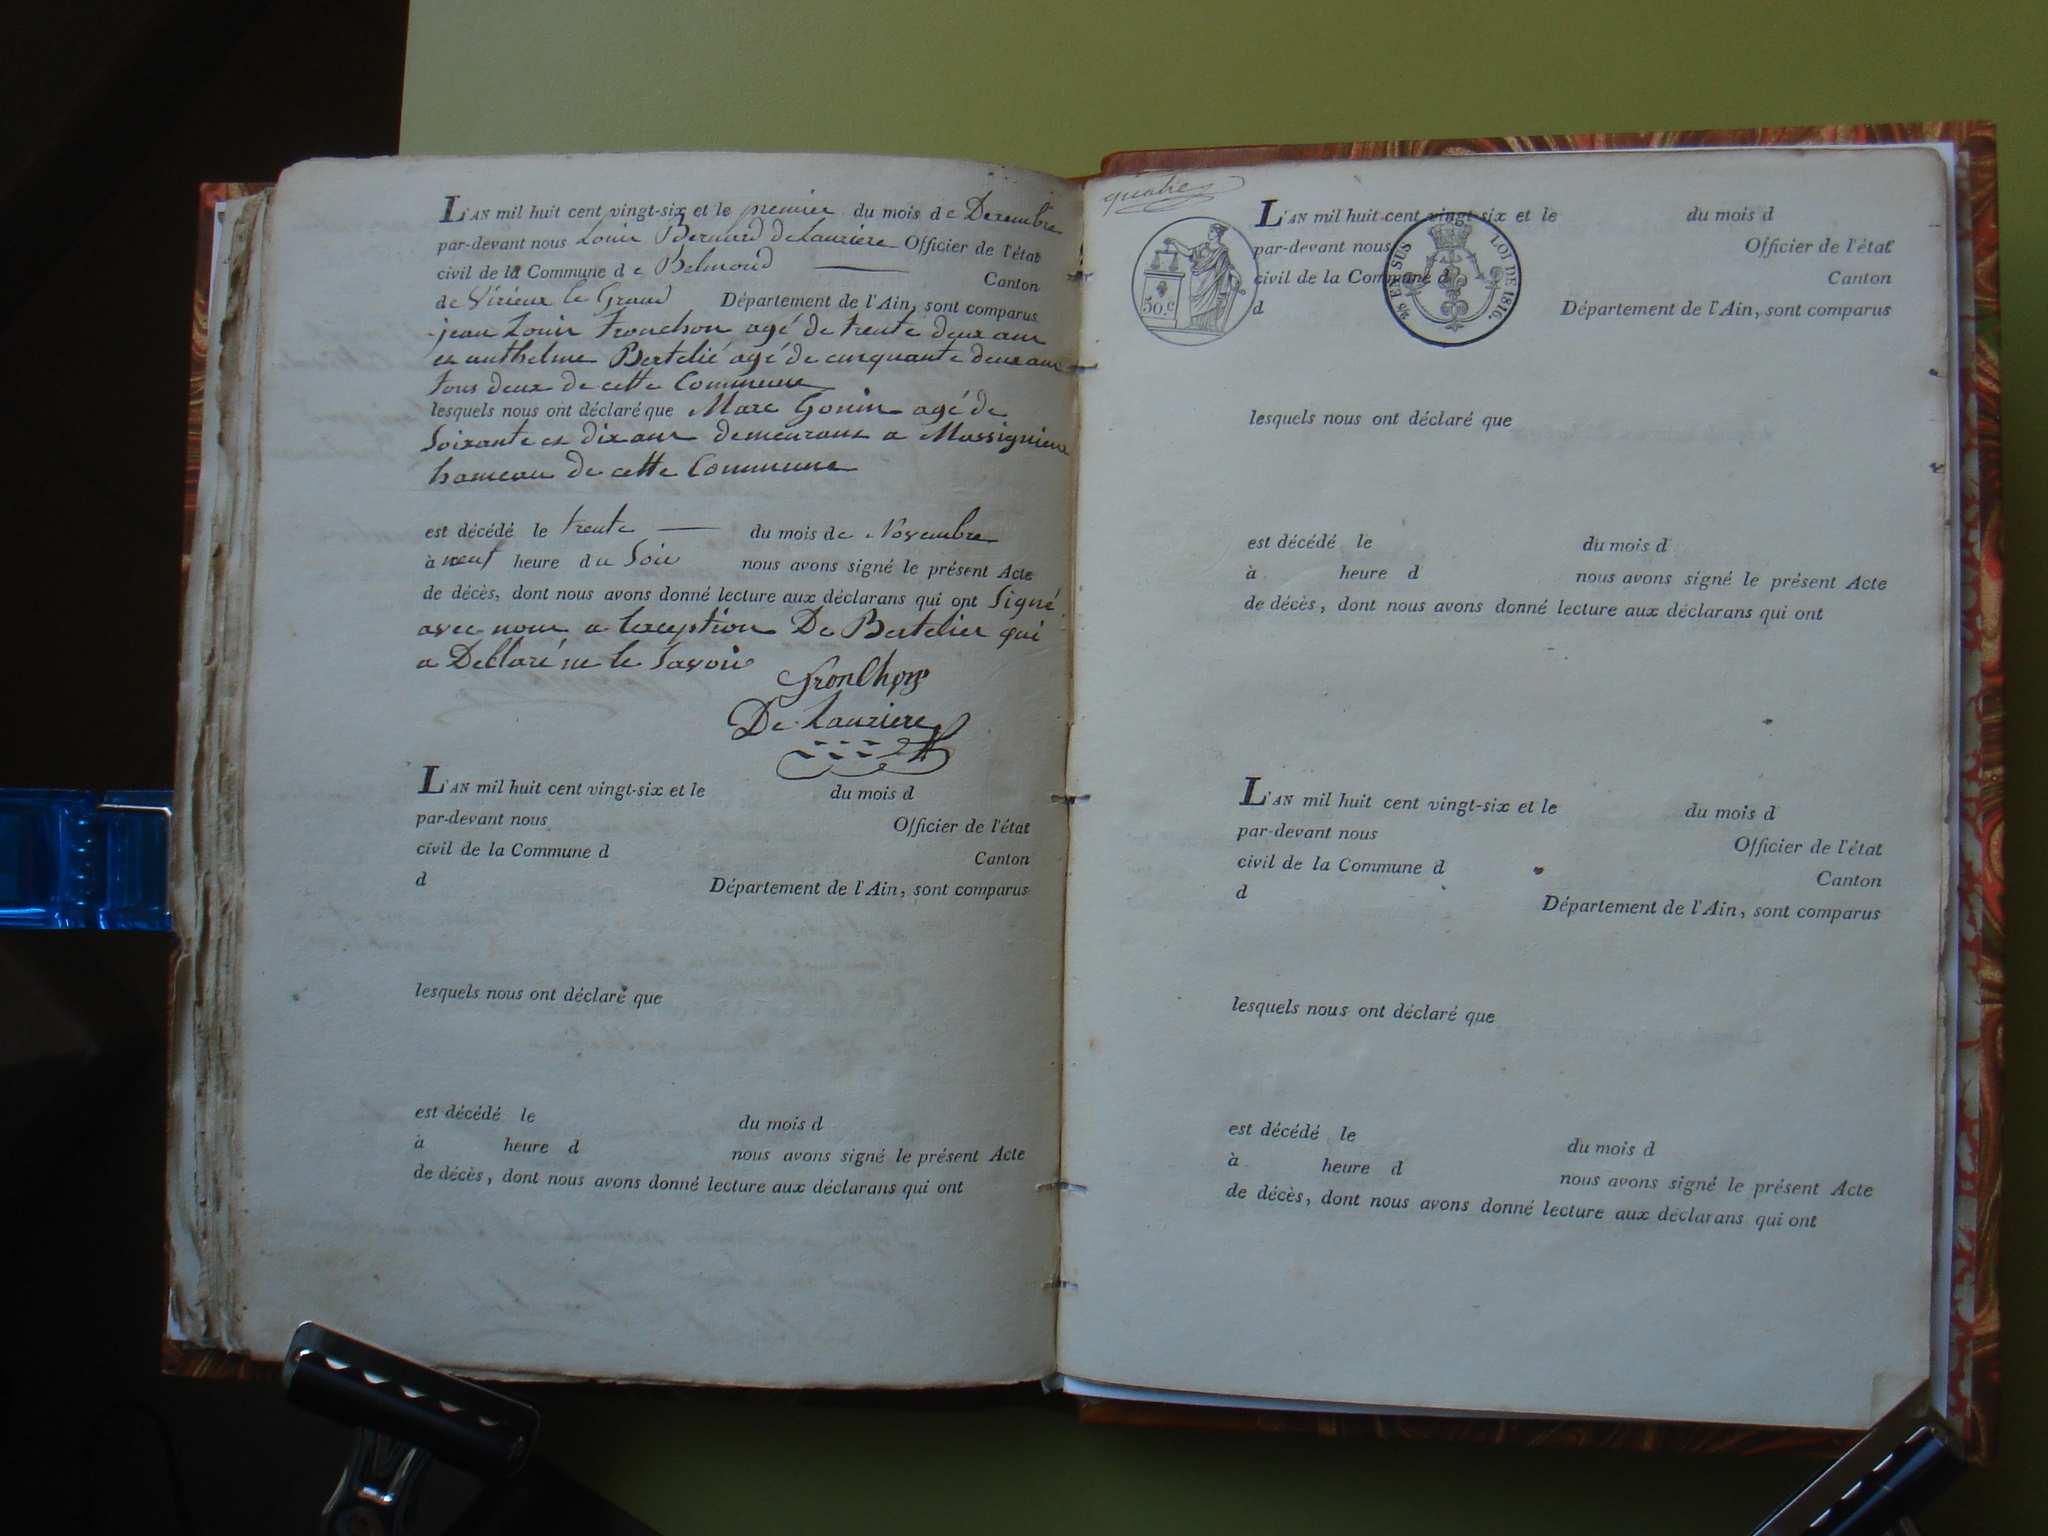 L'AN mil huit cent vingt-six et le premier du mois de Decembre
par-devant nous Louis Bernard deLauziere Officier de l'état
civil de la Commune de Belmond Canton
de Virieux le Grand Département de l'Ain, sont comparus
jean Louis tronchon agé de trente deux ans
et anthelme Bertelié agé de cinquante deux ans
tous deux de cette Commune
lesquels nous ont déclaré que Marc Gonin agé de
Soixante et dix ans demeurant a Massignieu
hameau de cette Commune
est décédé le trente du mois de Novembre
à neuf heure du Soir nous avons signé le présent Acte
de décès, dont nous avons donné lecture aux déclarans qui ont Signé
avec nous a lexception De Bertelier qui
a Declaré ne le Savoir
tronchon
De Lauziere
L'AN mil huit cent vingt-six et le du mois d
par-devant nous Officier de l'état
civil de la Commune d Canton
d Département de l'Ain, sont comparus
lesquels nous ont déclaré que
est décédé le du mois d
à heure d nous avons signé le présent Acte
de décès, dont nous avons donné lecture aux déclarans qui ont
quatre
50.c
EN SUS LOI DE 1816.
L'AN mil huit cent vingt-six et le du mois d
par-devant nous Officier de l'état
civil de la Commune d Canton
d Département de l'Ain, sont comparus
lesquels nous ont déclaré que
est décédé le du mois d
à heure d nous avons signé le présent Acte
de décès, dont nous avons donné lecture aux déclarans qui ont
L'AN mil huit cent vingt-six et le du mois d
par-devant nous Officier de l'état
civil de la Commune d Canton
d Département de l'Ain, sont comparus
lesquels nous ont déclaré que
est décédé le du mois d
à heure d nous avons signé le présent Acte
de décès, dont nous avons donné lecture aux déclarans qui ont